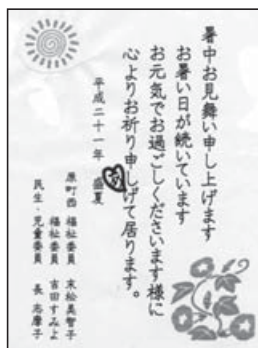 暑中お見舞い申し上げます
お暑い日が続いています
お元気でお過ごしくださいます様に
心よりお祈り申しげて居ります。
平成二十一年 盛夏
原町西 福祉委員 末松美智子
福祉委員 吉田すみよ
民生・児童委員 長 志摩子